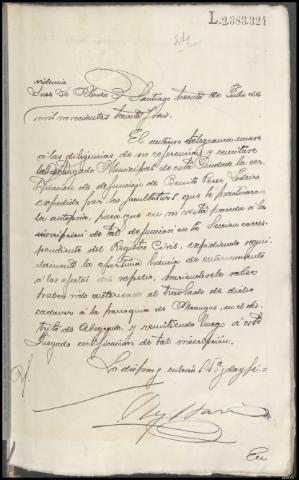 L.2383321
24
videncia
Juez Sr. Otero } Santiago treinta de Julio de
mil novecientos treinta y seis.
El anterior telegrama únase
á las diligencias de su referencia, y remítase
al Juzgado Municipal de esta Ciudad la cer-
tificación de defunción de Benito Pérez
expedida por los facultativos que le practicaron
la autopsia, para que en su vista proceda á la
inscripción de tal defunción en la Sección corres-
pondiente del Registro Civil, expidiendo segui-
damente la oportuna licencia de enterramiento
á los efectos del sepelio, haciéndole saber
haber sido autorizado el traslado de dicho
cadáver á la parroquia de en el dis-
trito de Abegondo, y remitiendo luego á este
Juzgado certificación de tal inscripción.
Lo dispuso y rubrica S.Sª; doy fé.-
En